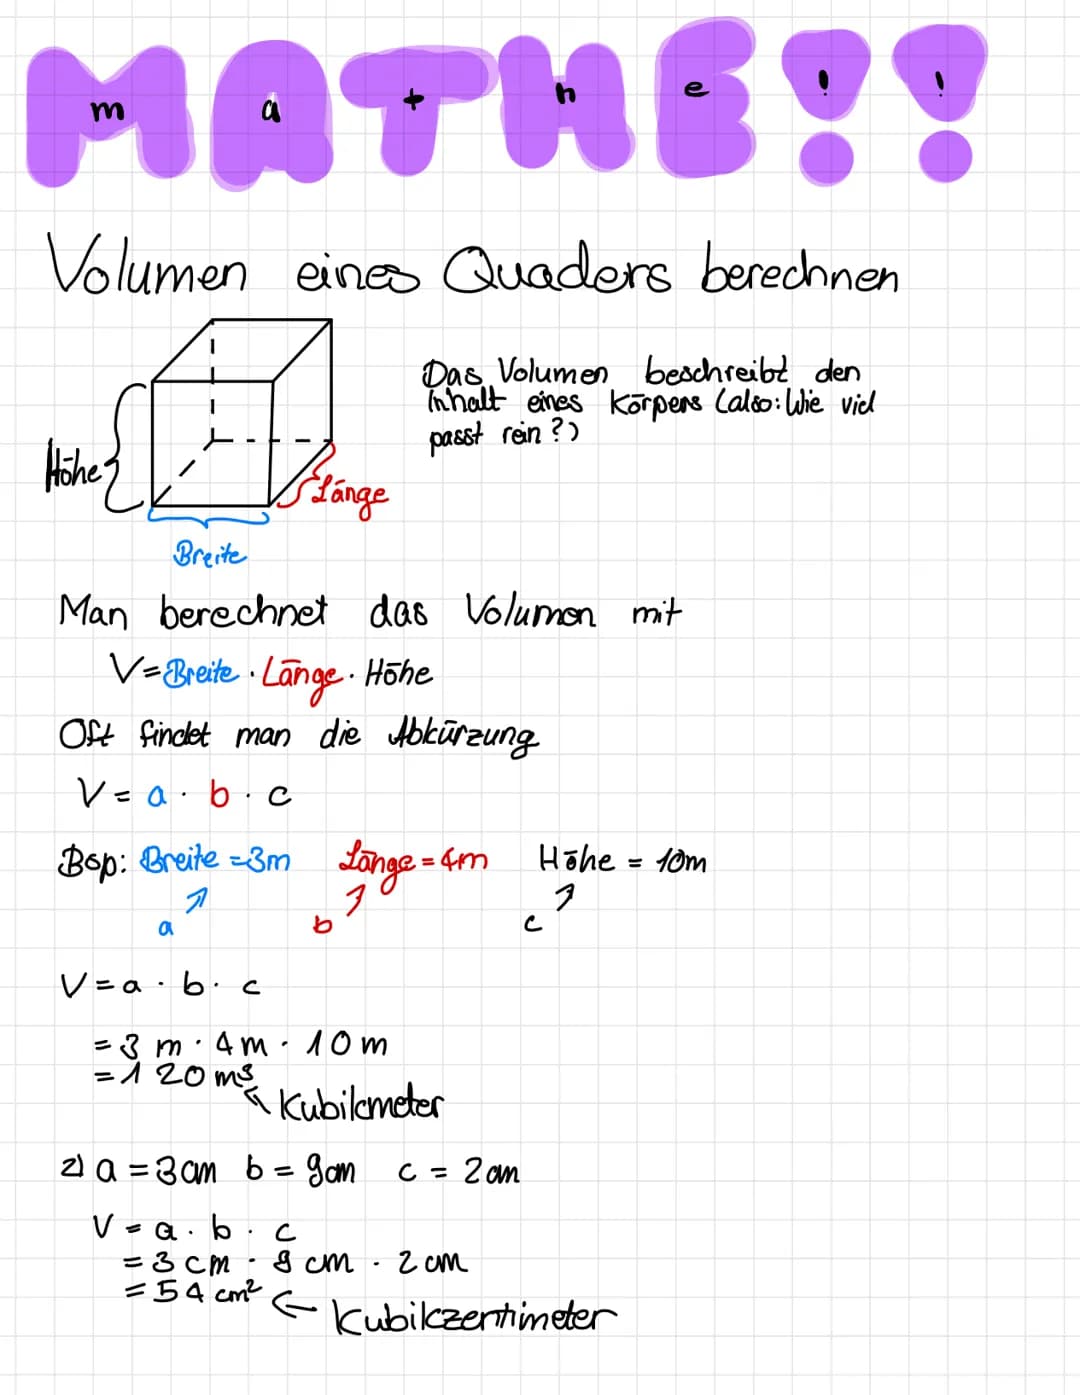 MATHE!!
m a t h e ! !
Volumen eines Quaders berechnen
Das Volumen beschreibt den
Inhalt eines Körpers (also: Wie viel
passt rein?)
Höhe
Länge
Breite
Man berechnet das Volumen mit
V = Breite · Länge · Höhe
Oft findet man die Abkürzung
V = a · b · c
Bsp: Breite = 3m Länge = 4m Höhe = 10m
a b c
V = a · b · c
= 3 m · 4 m · 10 m
= 120 m³
Kubikmeter
2) a = 3cm b = 9cm c = 2cm
V = a · b · c
= 3 cm · 9 cm · 2 cm
= 54 cm²
Kubikzentimeter